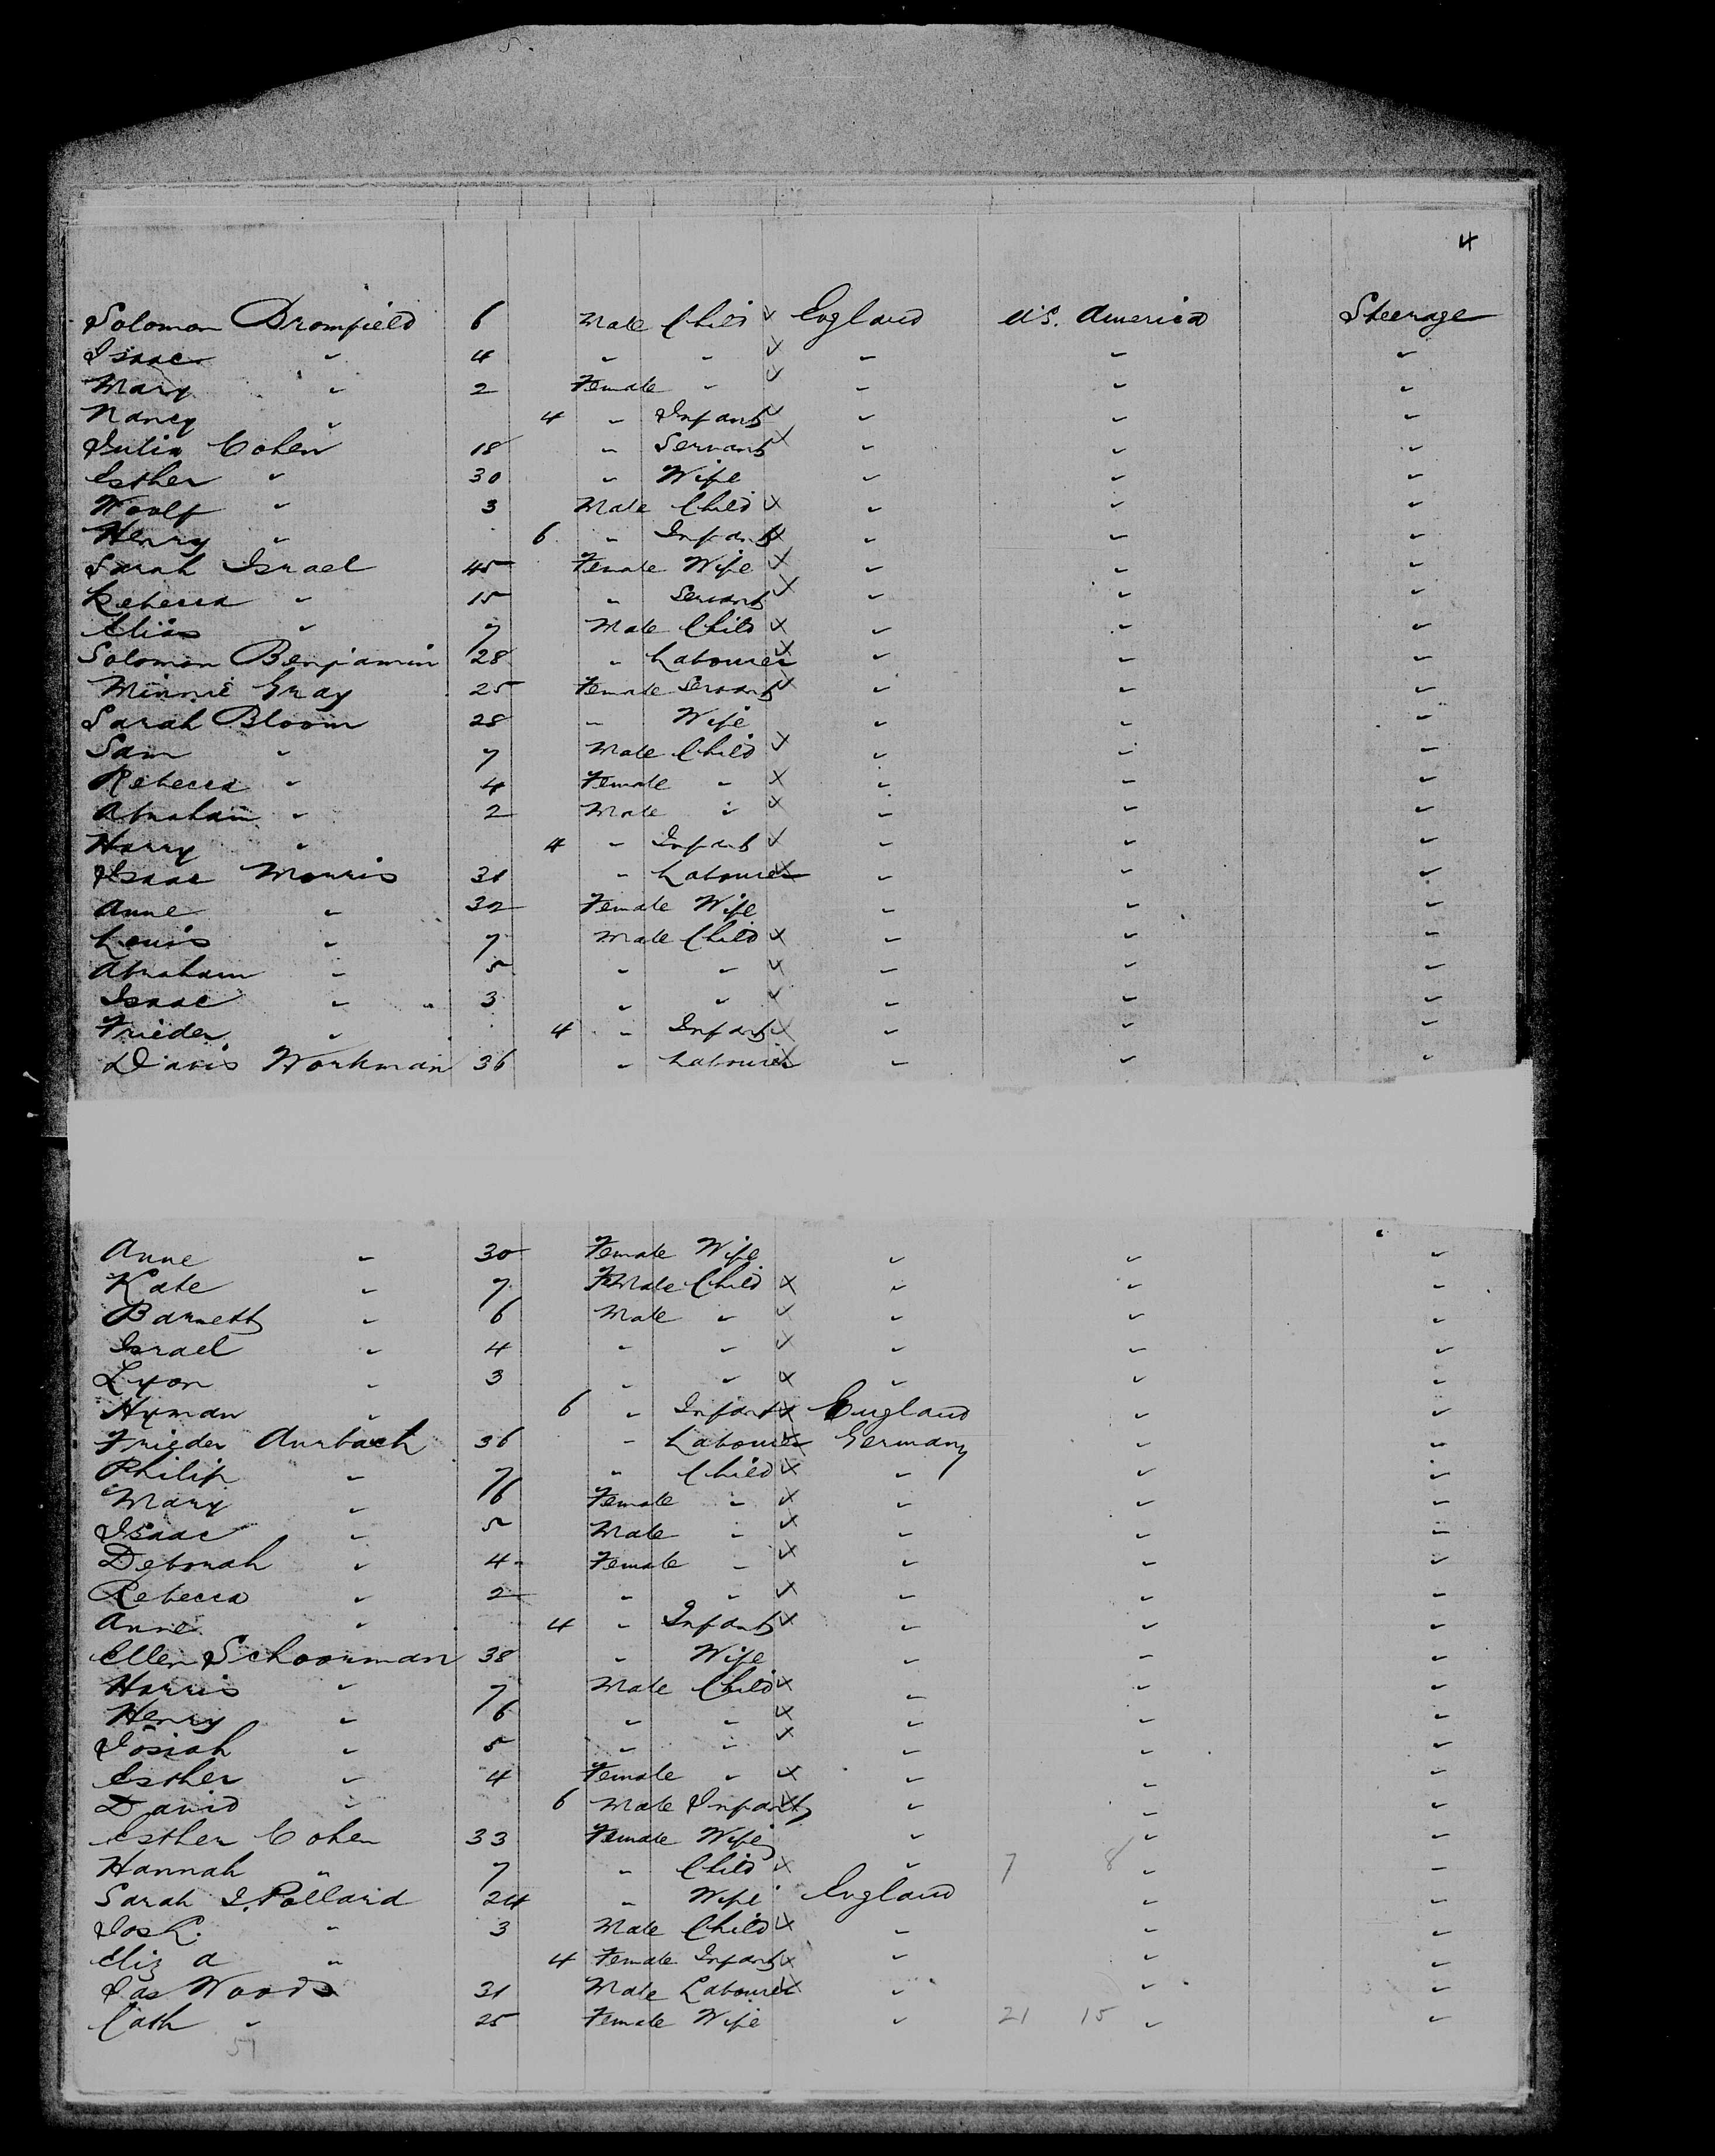 4
Solomon Bromfield 6 Male Child x England U.S. America Steerage
Isaac " 4 " " x " " "
Mary " 2 Female " x " " "
Nancy " 4 " Infant x " " "
Julia Cohen 18 " Servant x " " "
Esther " 30 " Wife " " "
Woolf " 3 Male Child x " " "
Henry " 6 " Infant x " " "
Sarah Israel 45 Female Wife x " " "
Rebecca " 15 " Servant x " " "
Elias " 7 Male Child x " " "
Solomon Benjamin 28 " Labourer x " " "
Minnie Gray 25 Female Servant x " " "
Sarah Bloom 28 " Wife " " "
Sam " 7 Male Child x " " "
Rebecca " 4 Female " x " " "
Abraham " 2 Male " x " " "
Harry " 4 " Infant x " " "
Isaac Morris 31 " Labourer x " " "
Anne " 32 Female Wife " " "
Louis " 7 Male Child x " " "
Abraham " 5 " " x " " "
Isaac " 3 " " x " " "
Frieder " 4 " Infant x " " "
Davis Workman 36 " Labourer x " " "
Anne " 30 Female Wife " " "
Kate " 7 FeMale Child x " " "
Barnett " 6 Male " x " " "
Israel " 4 " " x " " "
Lyon " 3 " " x " " "
Hyman " 6 " Infant x England " "
Frieder Aurbach 36 " Labourer x Germany " "
Philip " 7 " Child x " " "
Mary " 6 Female " x " " "
Isaac " 5 Male " x " " "
Deborah " 4 Female " x " " "
Rebecca " 2 " " x " " "
Anne " 4 " Infant x " " "
Ellen Schoorman 38 " Wife " " "
Harris " 7 Male Child x " " "
Henry " 6 " " x " " "
Josiah " 5 " " x " " "
Esther " 4 Female " x " " "
David " 6 Male Infant x " " "
Esther Cohen 33 Female Wife " " "
Hannah " 7 " Child x " 7 8 " "
Sarah J. Pollard 24 " Wife England " "
Jos R. " 3 Male Child x " " "
Eliz A " 4 Female Infant x " " "
Jas Woods 31 Male Labourer x " " "
Cath " 25 Female Wife " 21 15 " "
51